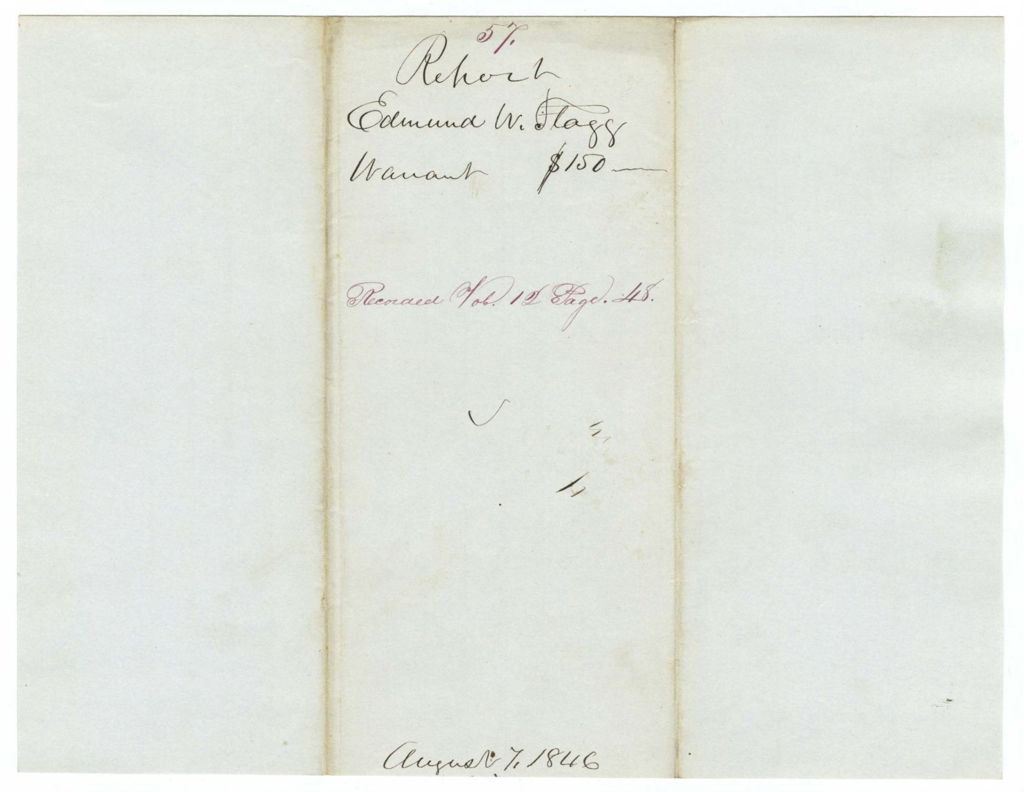 57.
Report
Edmund W. Flagg
Warrant $150
Recorded Vol. 12 Page. 48.
August 7, 1846